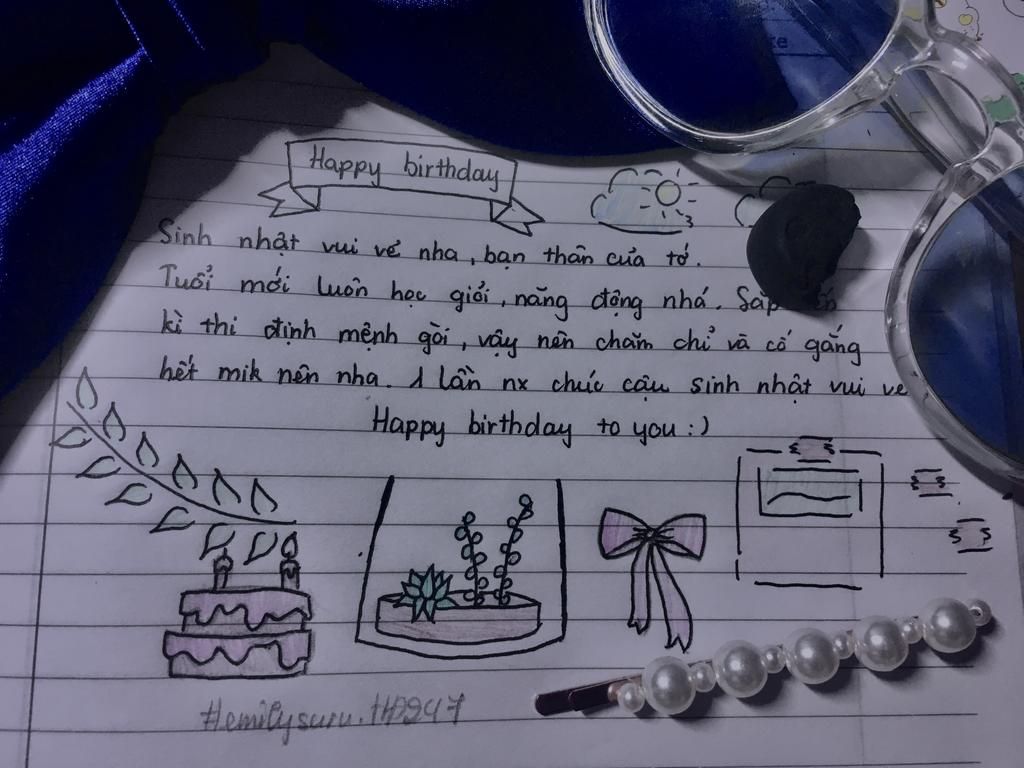 Happy birthday
Sinh nhật vui vẻ nha, bạn thân của tớ.
Tuổi mới luôn học giỏi, năng động nhá. Sắp
kì thi định mệnh gòi, vậy nên chăm chỉ và cố gắng
hết mik nên nha. 1 lần nx chúc cậu sinh nhật vui vẻ
Happy birthday to you :)
#emilysuru.HP247